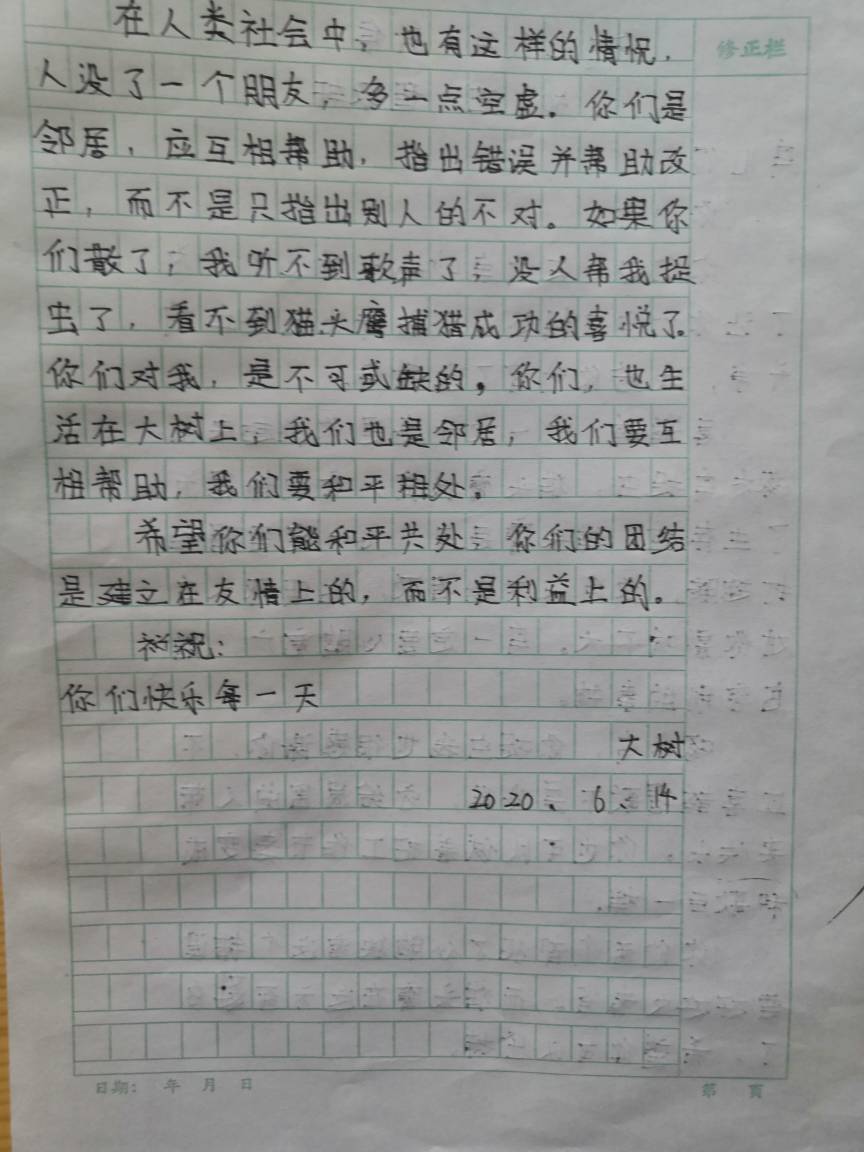 在人类社会中，也有这样的情况，
修正栏
人没了一个朋友，多一点空虚。你们是
邻居，应互相帮助，指出错误并帮助改
正，而不是只指出别人的不对。如果你
们散了，我听不到歌声了，没人帮我捉
虫了，看不到猫头鹰捕猎成功的喜悦了。
你们对我，是不可或缺的。你们，也生
活在大树上，我们也是邻居，我们要互
相帮助，我们要和平相处。
希望你们能和平共处，你们的团结
是建立在友情上的，而不是利益上的。
祝：
你们快乐每一天
大树
2020、6、14
日期： 年 月 日
第 页